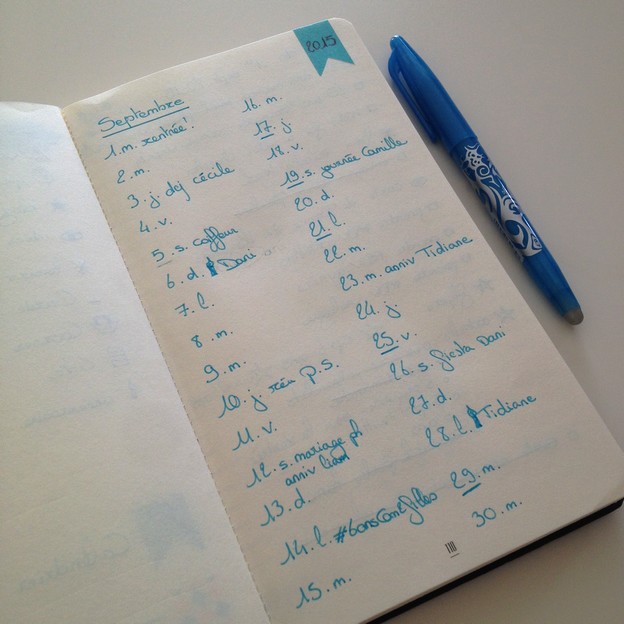 2015
Septembre
1. m. rentrée!
2. m.
3. j. dej cécile
4. v.
5. s. coiffeur
6. d. Dani
7. l.
8. m.
9. m.
10. j. réu p.s.
11. v.
12. s. mariage ph
anniv liam
13. d.
14. l.
15. m.
16. m.
17. j.
18. v.
19. s. journée Camille
20. d.
21. l.
22. m.
23. m. anniv Tidiane
24. j.
25. v.
26. s. fiesta Dani
27. d.
28. l. Tidiane
29. m.
30. m.